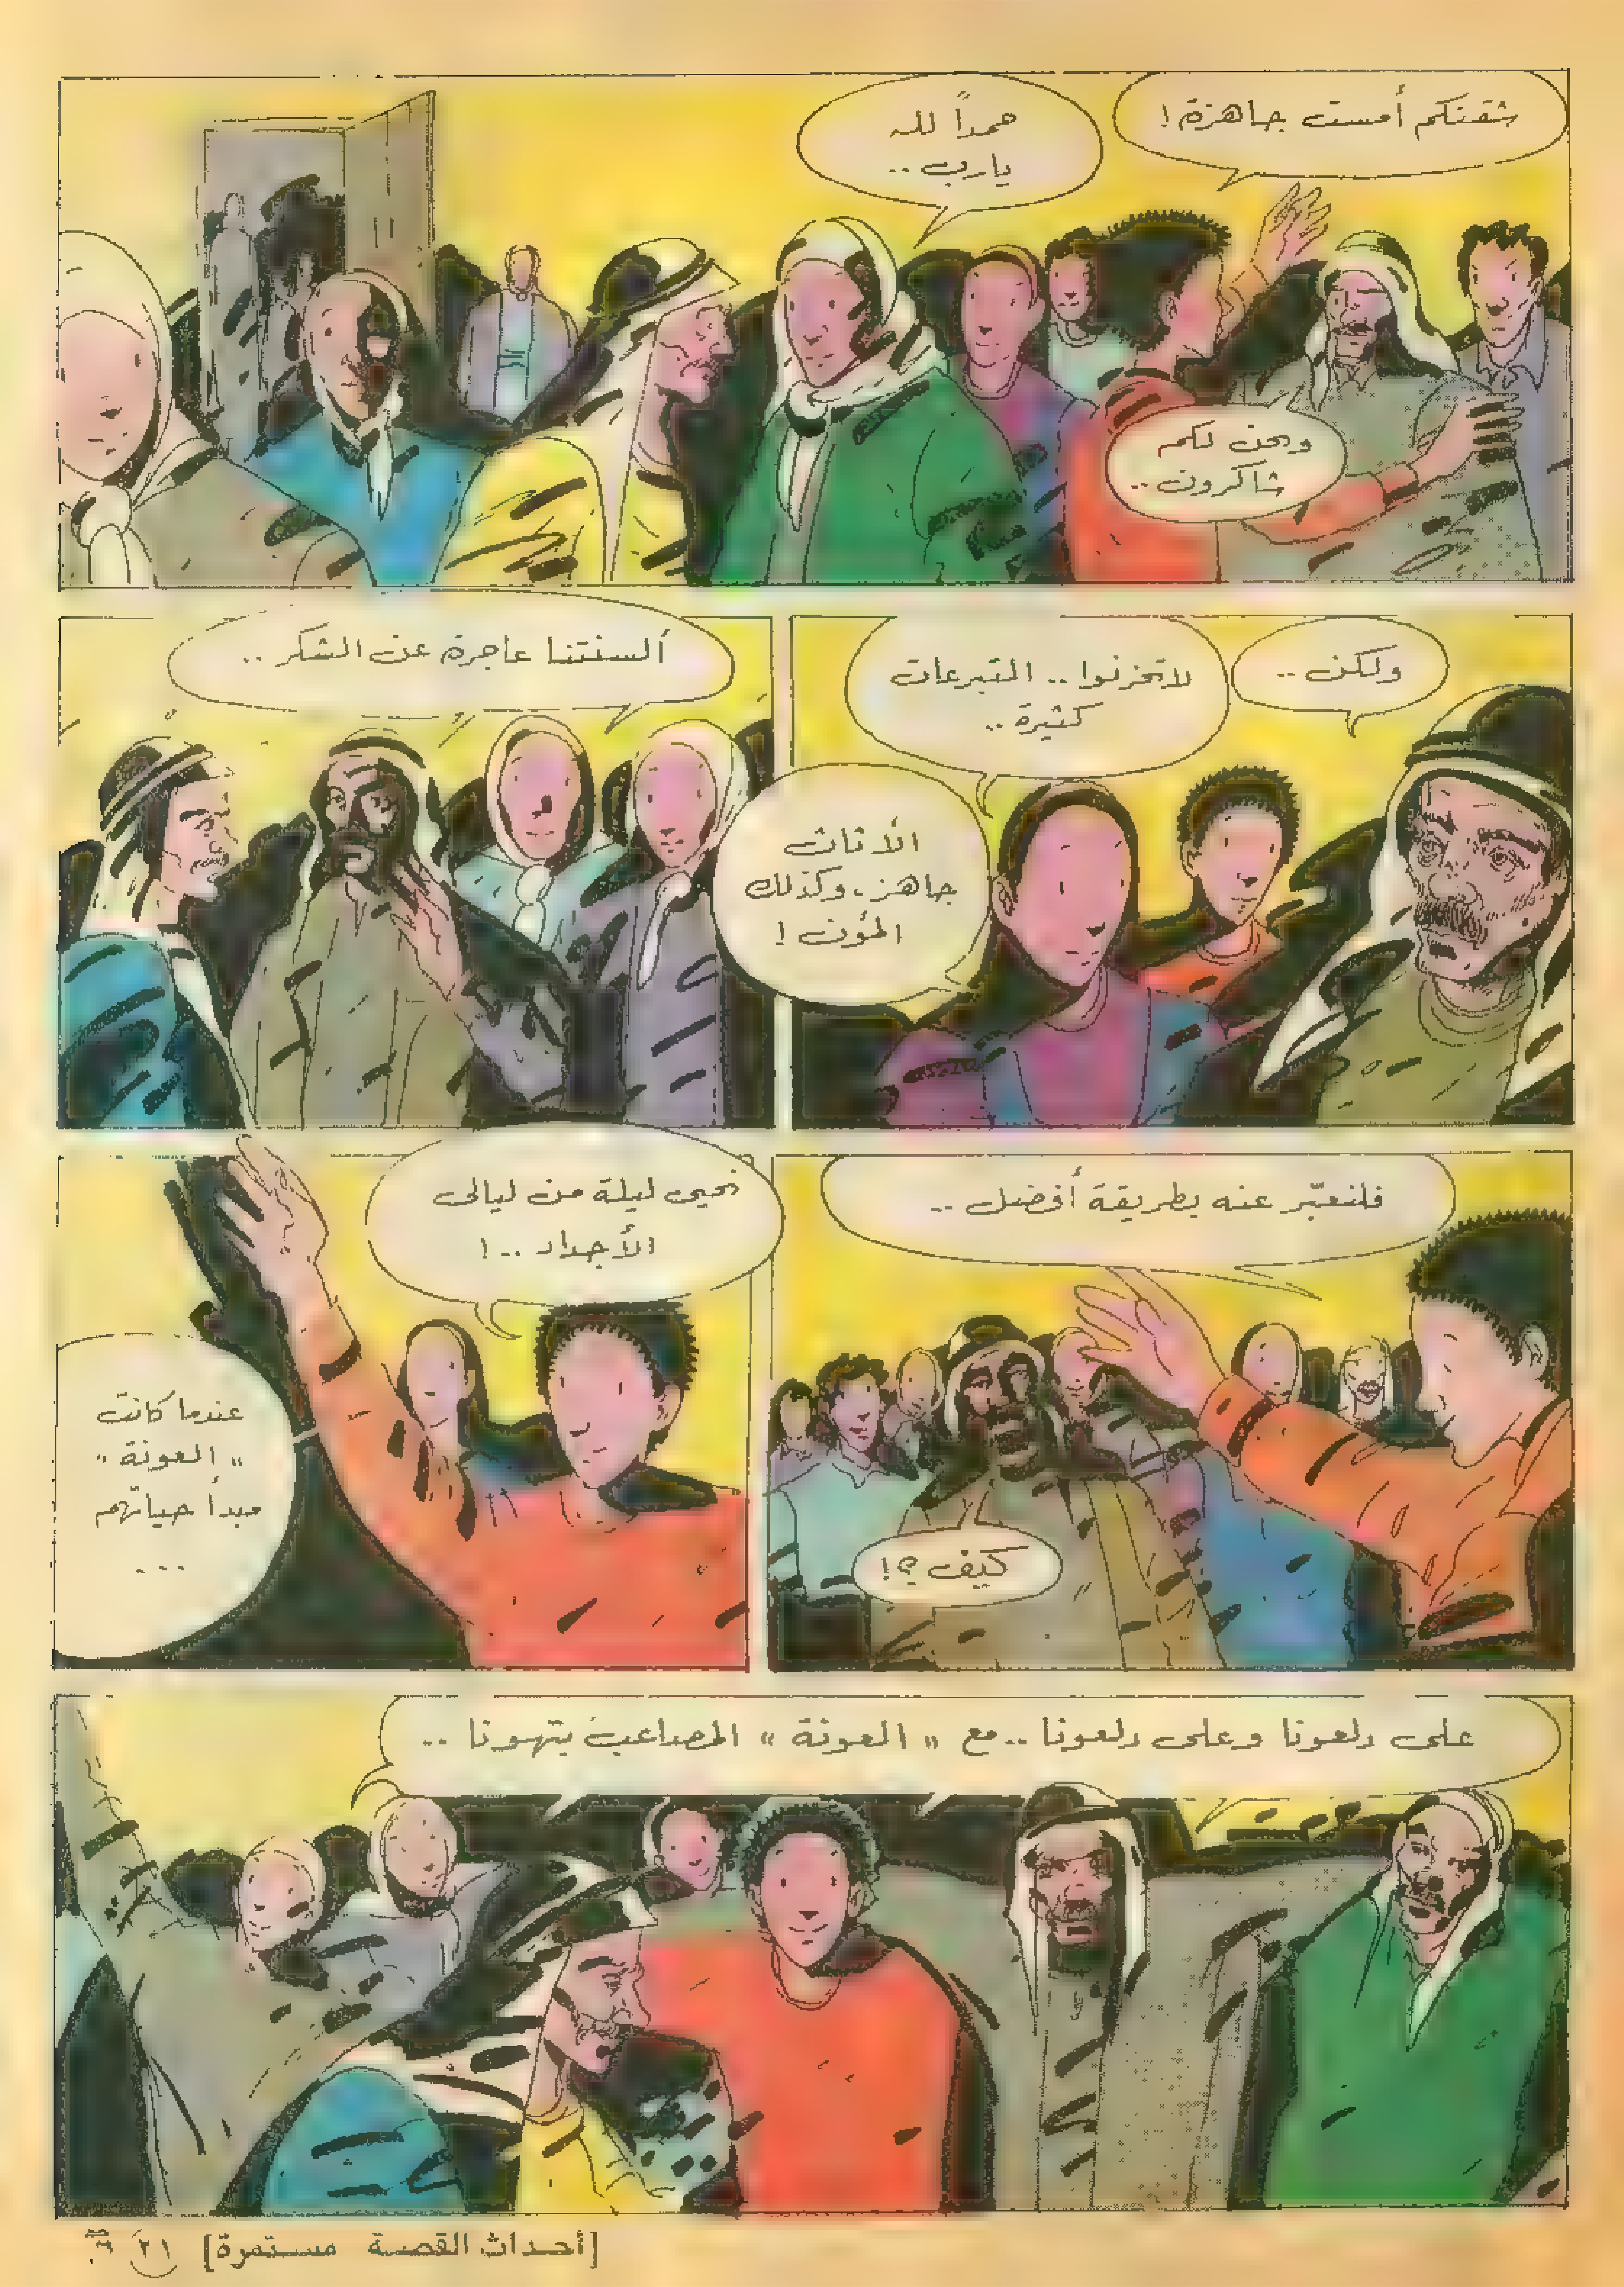 شقتكم أمست جاهزة !
حمداً لله
يارب ..
ونحن لكم
شاكرون ..
ولكن ..
لاتحزنوا .. التبرعات
كثيرة ..
الأثاث
جاهز ، وكذلك
المؤن !
ألسنتنا عاجزة عن الشكر ..
فلنعبّر عنه بطريقة أفضل ..
كيف ؟!
نحيي ليلة من ليالي
الأجداد .. !
عندما كانت
" العونة "
مبدأ حياتهم
...
على دلعونا وعلى دلعونا .. مع " العونة " المصاعب بتهونا ..
[أحداث القصة مستمرة] ٢١